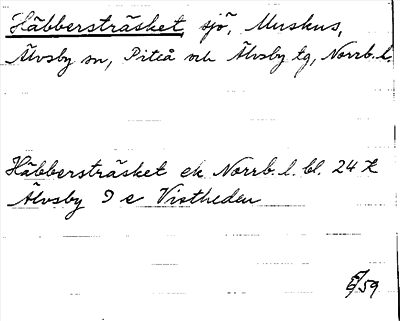 Häbbersträsket, sjö, Muskus,
Älvsby sn, Piteå och Älvsby tg, Norrb. l.
Häbbersträsket ek Norrb. l. bl. 24 K
Älvsby 9 e Vistheden
5/59